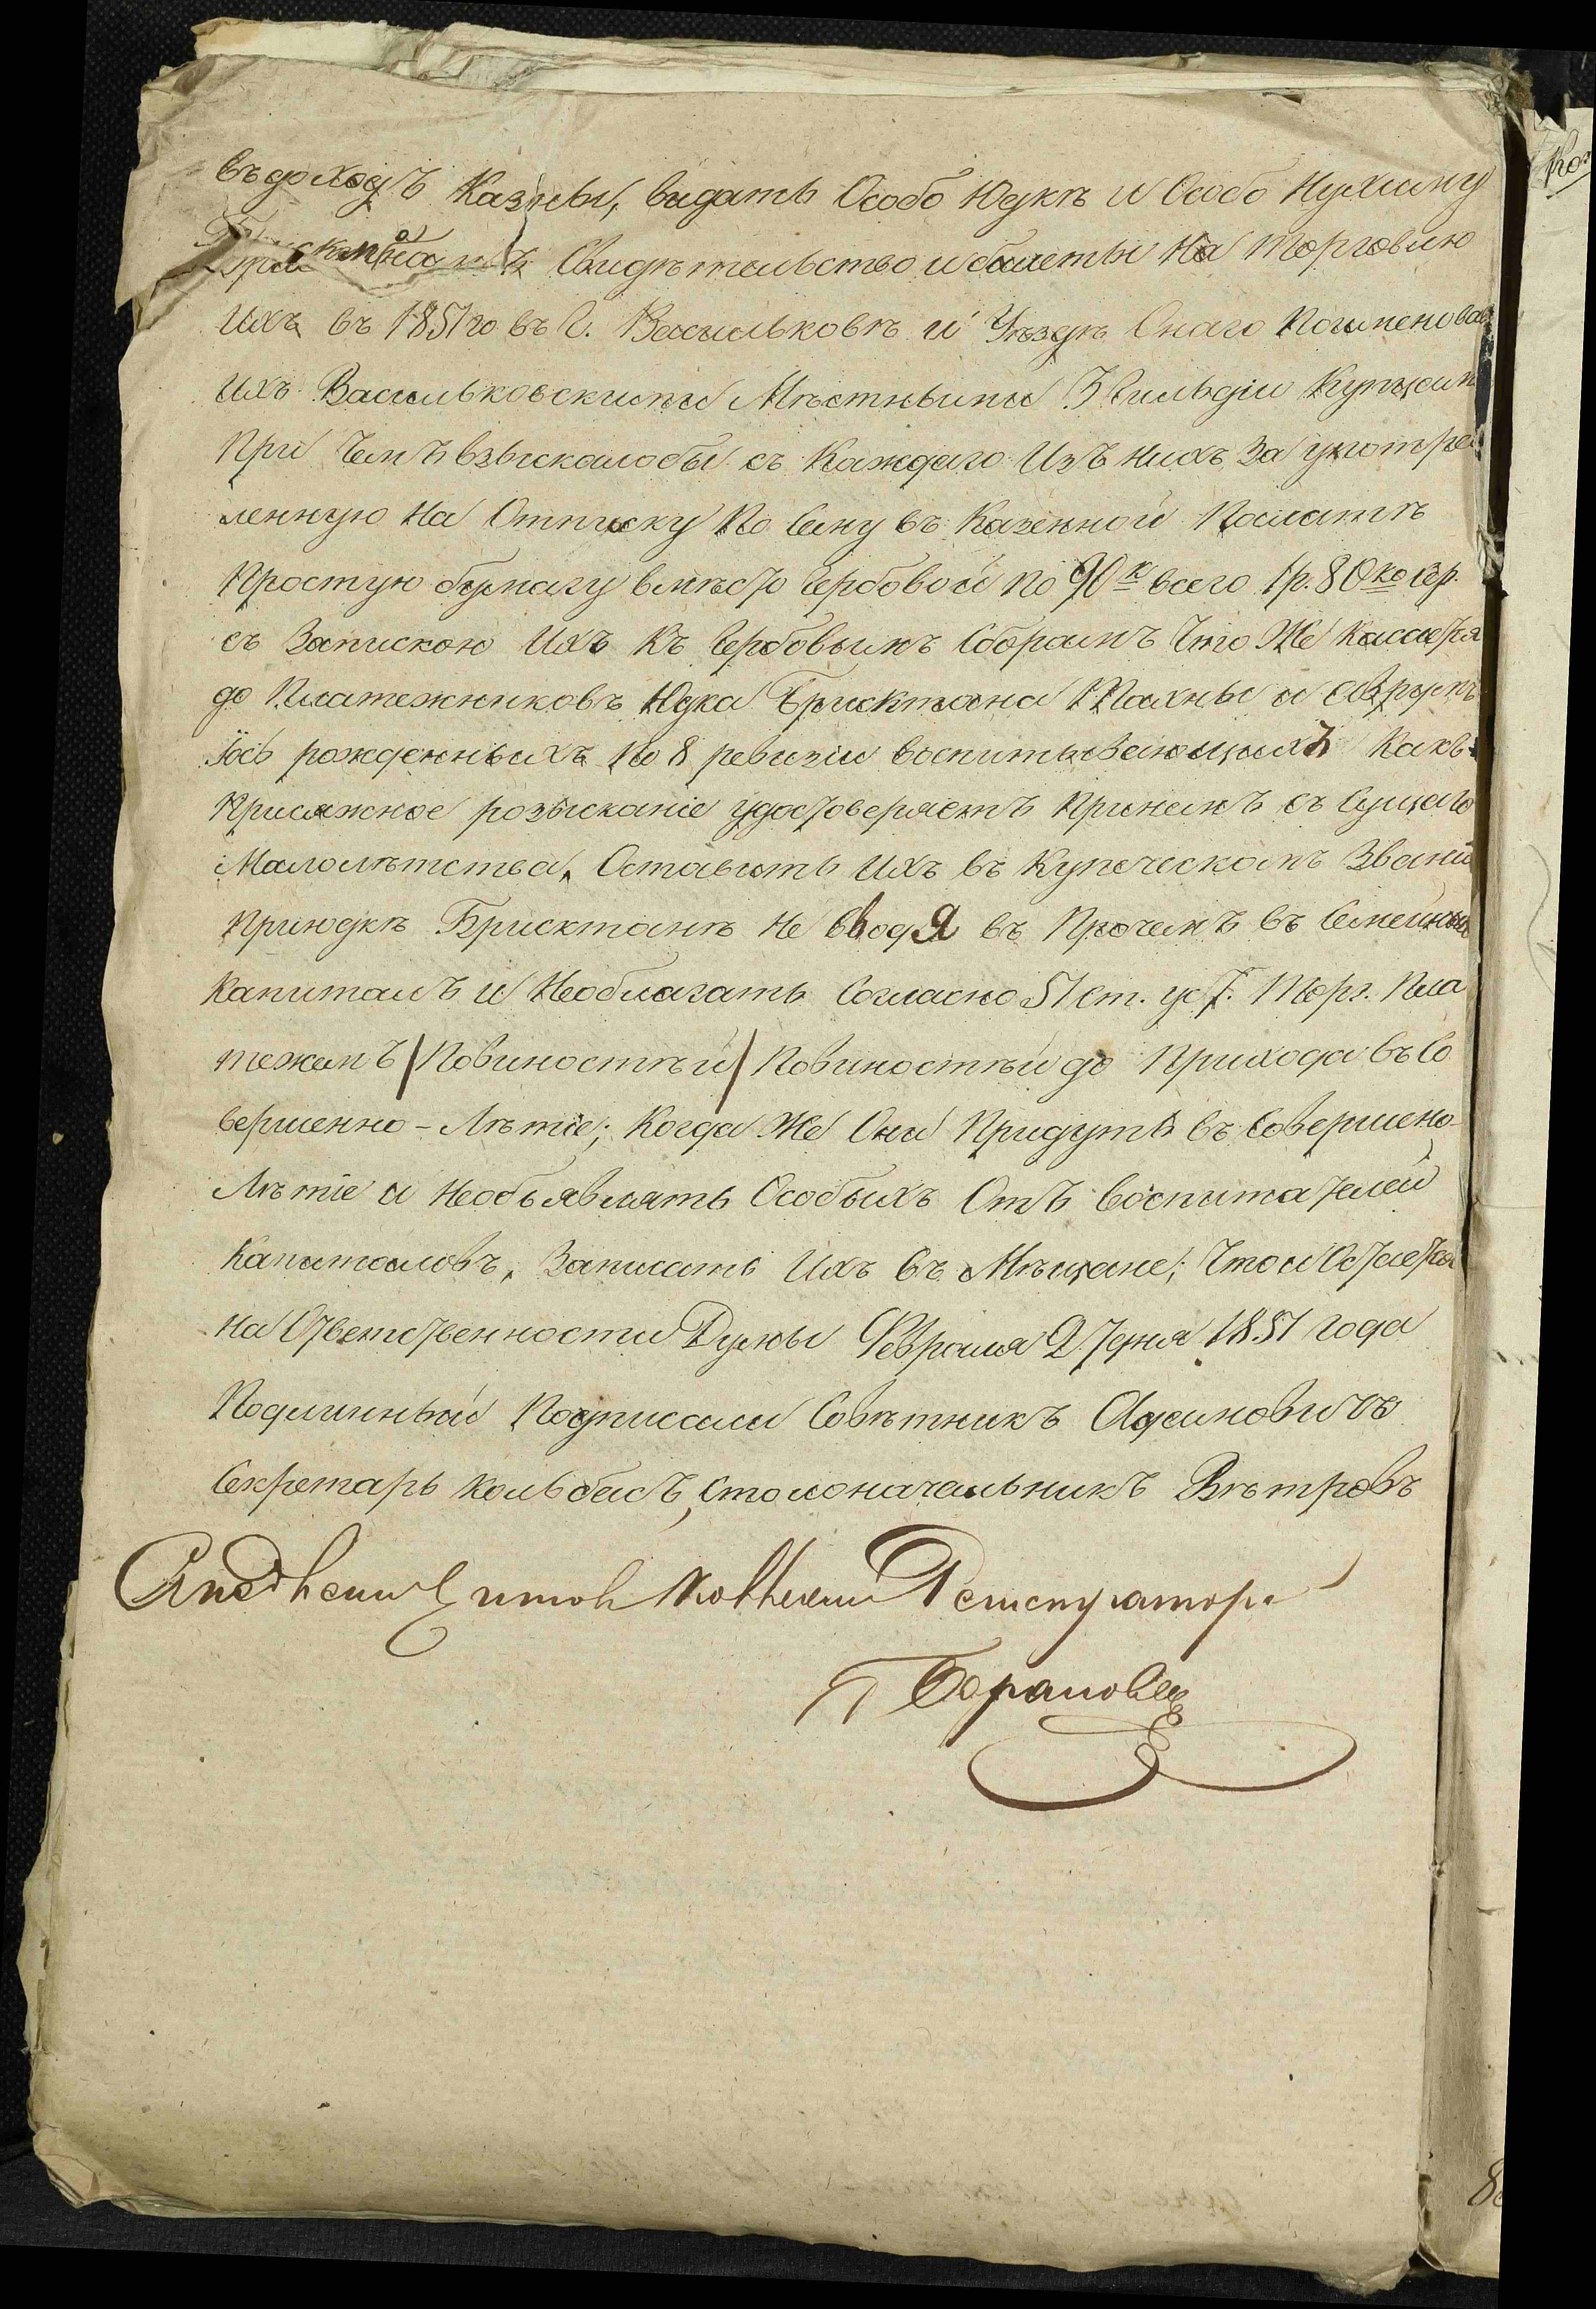 въ доходъ Казны, видать Особо Юдкѣ и Особо Нухиму
Брисктанамъ Свидѣтельство и билеты на торговлю
ихъ въ 1851 го въ Г. Васильковѣ и Уѣздѣ Онаго Поименовав
ихъ Васильковскими Мѣстными 3 Гильдіи Купцами
При чемъ взыскалобы съ Каждаго Изъ нихъ За употреб
ленную На Отписку По Сему въ Казенной Палатѣ
Простую бумагу вмѣсто Гербовой по 90 к всего 1 р. 80 ко Сер.
съ Запискою Ихъ Къ Гербовымъ Сборамъ Что Же Касается
до Платежниковъ Юдка Брисктана Махны и Аврумъ
Іось рожденныхъ По 8 ревизіи воспитывающихъ Какъ
Присяжное розысканіе удостоверяетъ Принемъ съ Сущаго
Малолѣтства, Оставить Ихъ въ Купеческомъ Званіи
При юдкѣ Брисктанѣ Не вводя въ Прочемъ въ Семейный
Капиталъ и Необлагать Согласно 51 ст. уст. Торг. Пла
тежемъ / Повиностѣй / Повиностѣй до Прихода въ Со
вершенно-Лѣтіе; Когда Же Они Придутъ въ Совершено-
Лѣтіе и Необъявлять Особыхъ Отъ воспитателей
Капиталовъ, Записать Ихъ въ Мѣщане; Что и Остается
на Ответственности Думы Февраля 27 дня 1851 года
Подлинный Подписали Совѣтникъ
Секретарь Кольбасъ, Столоначальникъ Вѣтровъ
Регистраторъ